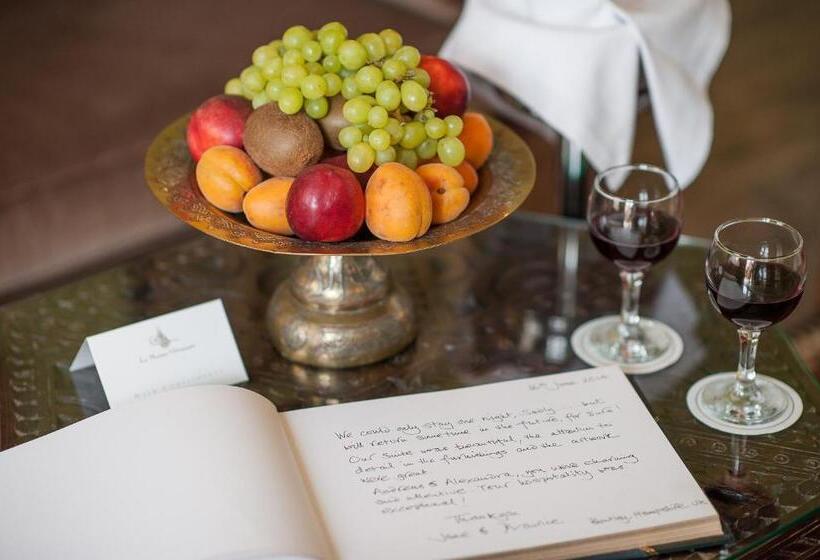 We could only stay one night, Sadly... but
will return sometime in the future, for sure!
Our suite was beautiful, the attention to
detail in the furnishings and the artwork
were great.
Andreas & Alexandra, you were charming
and attentive. Your hospitality was
exceptional!
Jane & Maurice
Hampshire, UK